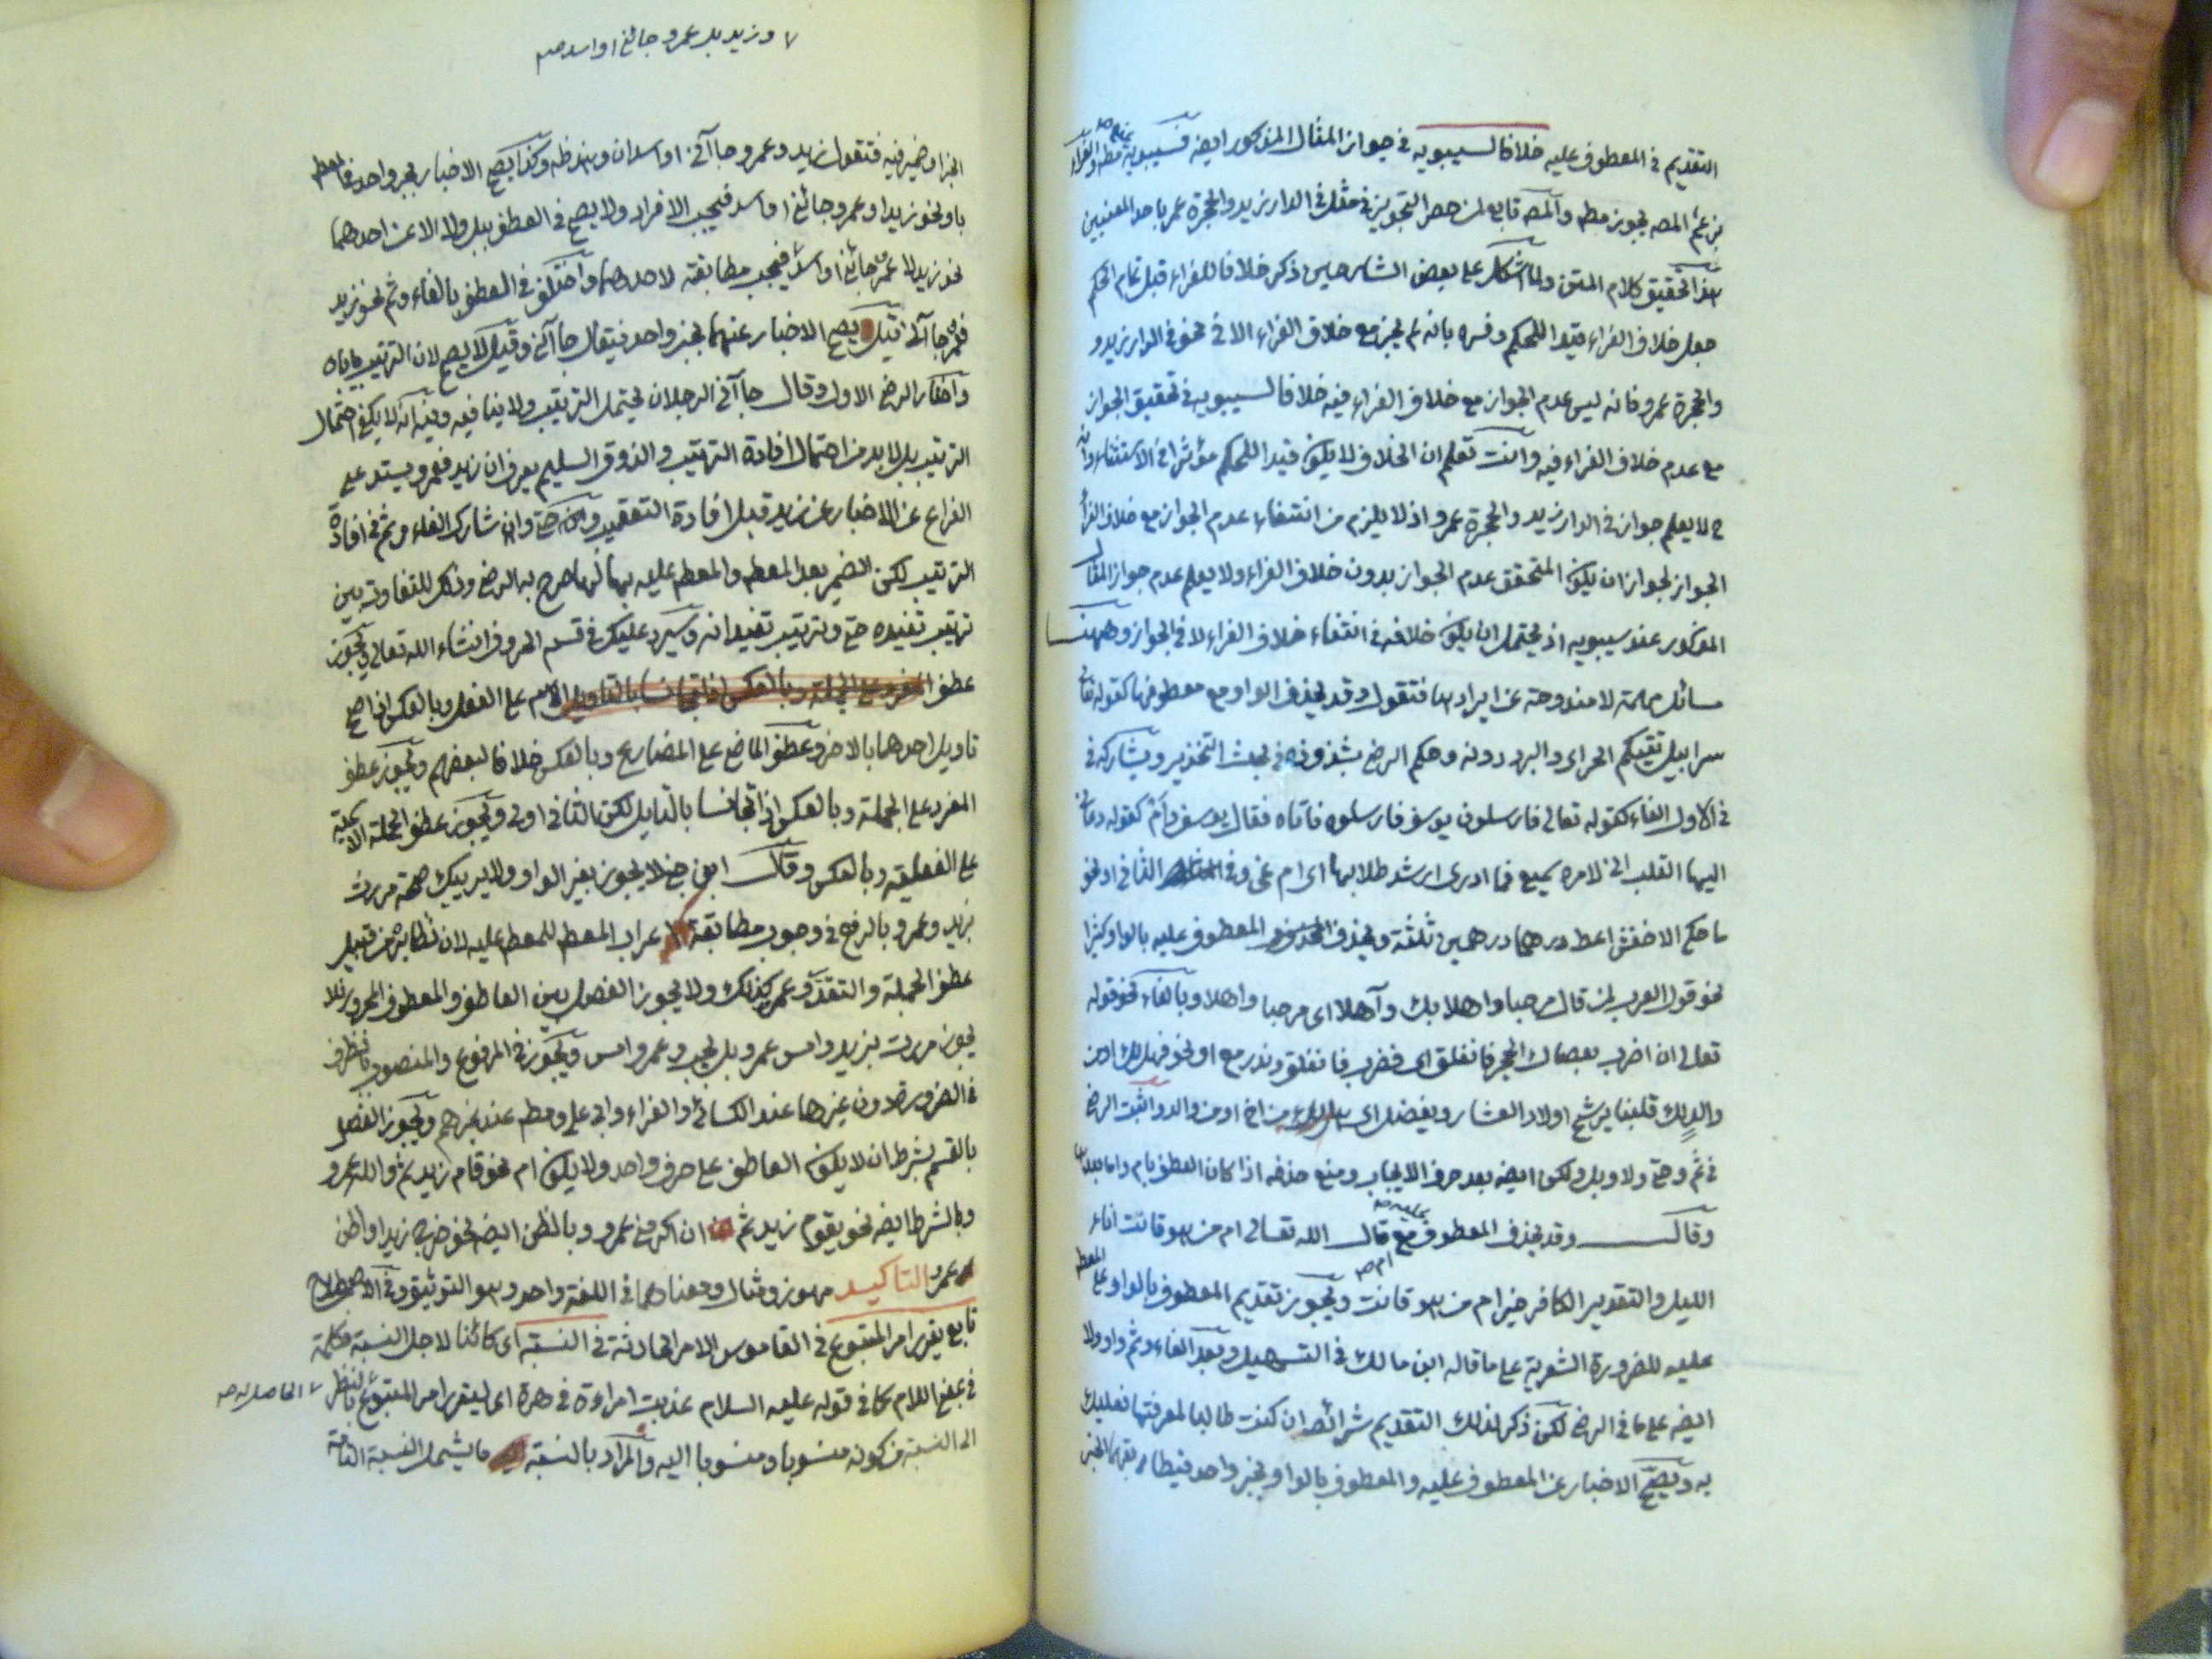 التقديم في المعطوف عليه خلافا لسيبويه في جواز المثال المذكور ايضه فسيبويه يمنع مطه والفراء
يزعم المصه يجوز مطه والمصه تابع لمن حصر التجويز في مثل في الدار زيد والحجرة عمر باحد المعنيين
هذا تحقيق كلام المتن ولما اشكل على بعض الشارحين ذكر خلافا للفراء قبل تمام الحكم
جعل خلاف الفراء قيدا للحكم وفسره بانه لم يجز مع خلاف الفراء الا في نحو في الدار زيد و
والحجرة عمرو فانه ليس عدم الجواز مع خلاف الفراء فيه خلافا لسيبويه في تحقيق الجواز
مع عدم خلاف الفراء فيه وانت تعلم ان الخلاف لا يكون قيدا للحكم مؤثرا في الاستثناء وانه
ح لا يعلم جواز في الدار زيد والحجرة عمرو اذ لا يلزم من انتفاء عدم الجواز مع خلاف الفراء
الجواز لجواز ان يكون المتحقق عدم الجواز بدون خلاف الفراء ولا يعلم عدم جواز المثال
المذكور عند سيبويه اذ يحتمل ان يكون خلافه في انتفاء خلاف الفراء لا في الجواز وههنا
مسائل مهمة لا مندوحة عن ايرادها فتقول وقد يحذف الواو مع معطوفها كقوله تعالى
سرابيل تقيكم الحر اي والبرد دونه وحكم الرضي بشذوذه في بحث التحذير ويشاركه في
في الاول الفاء كقوله تعالى فارسلون يوسف فارسلوه فاتاه فقال يوسف وام كقوله دعاني
اليها القلب اني لامره سميع فما ادري ارشد طلابها اي ام غي وفي الثاني او نحو
ما حكى الاخفش اعط درهما درهمين ثلثة ويحذف المعطوف عليه بالواو كثيرا
نحو قول العرب لمن قال مرحبا واهلا بك وآهلا اي مرحبا واهلا وبالفاء نحو قوله
تعالى ان اضرب بعصاك الحجر فانفلق اي فضرب فانفلق وندر مع او نحو فهل لك او من
والد لك قبلنا يرشح اولاد العشار ويفضل اي من اخ او من والد واثبت الرضي
في ثم وحتى ولا وبل ولكن ايضه بعد حرف الايجاب ومنع حذفه اذا كان العطف بام واما بعد
وقال وقد يحذف المعطوف عليه مع ام قال الله تعالى ام من هو قانت اناء
الليل والتقدير الكافر خير ام من هو قانت ويجوز تقديم المعطوف بالواو على المعطو
عليه للضرورة الشعرية على ما قاله ابن مالك في التسهيل وبعد الفاء وثم واو ولا
ايضه على ما في الرضي لكن ذكر لذلك التقديم شرائط ان كنت طالبا لمعرفتها فعليك
به ويصح الاخبار عن المعطوف عليه والمعطوف بالواو بخبر واحد فيطابقهما الخبر
٧ وزيد بل عمرو جائني او اسد صه
الخبر او ضميره فيه فتقول زيد وعمرو جاآني او اسدان وكذا يصح الاخبار بخبر واحد
باو نحو زيد او عمرو جائني او اسد فيجب الافراد ولا يصح في العطف ببل ولا الا عن احدهما
نحو زيد لا عمرو جائني او اسد فيجب مطابقته لاحدهما واختلف في العطف بالفاء وثم نحو زيد
فعمرو جاآني قيل يصح الاخبار عنهما بخبر واحد فيقال جاآني وقيل لا يصح لان الترتيب ياباه
واختار الرضي الاول وقال جاآني الرجلان يحتمل الترتيب ولا ينافيه وفيه انه لا يكفي احتمال
الترتيب بل لا بد من احتمال افادة الترتيب والذوق السليم يعرف ان زيد فعمرو يستدعي
الفراغ عن الاخبار عن زيد قبل افادة التعقيب وان شارك الفاء وثم في افادة
الترتيب لكن الضمير بعد المعطو والمعطو عليه بها لهما صرح به الرضي وذلك للتفاوت بين
ترتيب تفيده حتى وترتيب تفيدانه وسيرد عليك في قسم الحروف انشاء الله تعالى ويجوز
عطف الاسم على الفعل وبالعكس ان صح
تاويل احدهما بالاخر وعطف الماضي على المضارع وبالعكس خلافا لبعضهم ويجوز عطف
المفرد على الجملة وبالعكس اذا تجانسا بالتاويل لكن الثاني اولى ويجوز عطف الجملة الاسمية
على الفعلية وبالعكس وقال ابن جني لا يجوز بغير الواو ولا يريبك صحة مررت
بزيد وعمرو بالرفع في وجوب مطابقة اعراب المعطو للمعطو عليه لان نظائره من قبيل
عطف الجملة والتقدير وعمرو كذلك ولا يجوز الفصل بين العاطف والمعطوف المجرور فلا
يجوز مررت بزيد وامس عمرو بل يجب وعمرو امس ويجوز في المرفوع والمنصوب بالظرف
في الضرورة دون غيرها عند الكسائي والفراء وابي علي ومطه عند غيرهم ويجوز الفصل
بالقسم بشرط ان لا يكون العاطف على حرف واحد ولا يكون ام نحو قام زيد ثم والله عمرو
وبالشرط ايضه نحو يقوم زيد ثم ان اكرمني عمرو وبالظن ايضه نحو ضرب زيدا او اظن
عمرو التاكيد مهموز ومثال ومعناهما في اللغة واحد وهو التوثيق وفي الاصطلاح
تابع يقرر امر المتبوع في القاموس الامر الحادثة في النسبة اي كائنا لاجل النسبة فكلمة
في بمعنى اللام كما في قوله عليه السلام عذبت امراءة في هرة اي ليقرر امر المتبوع بالنظر ٧ الحاصل له صه
الى النسبة من كونه منسوبا ومنسوبا اليه والمراد بالنسبة ما يشمل النسبة التامة